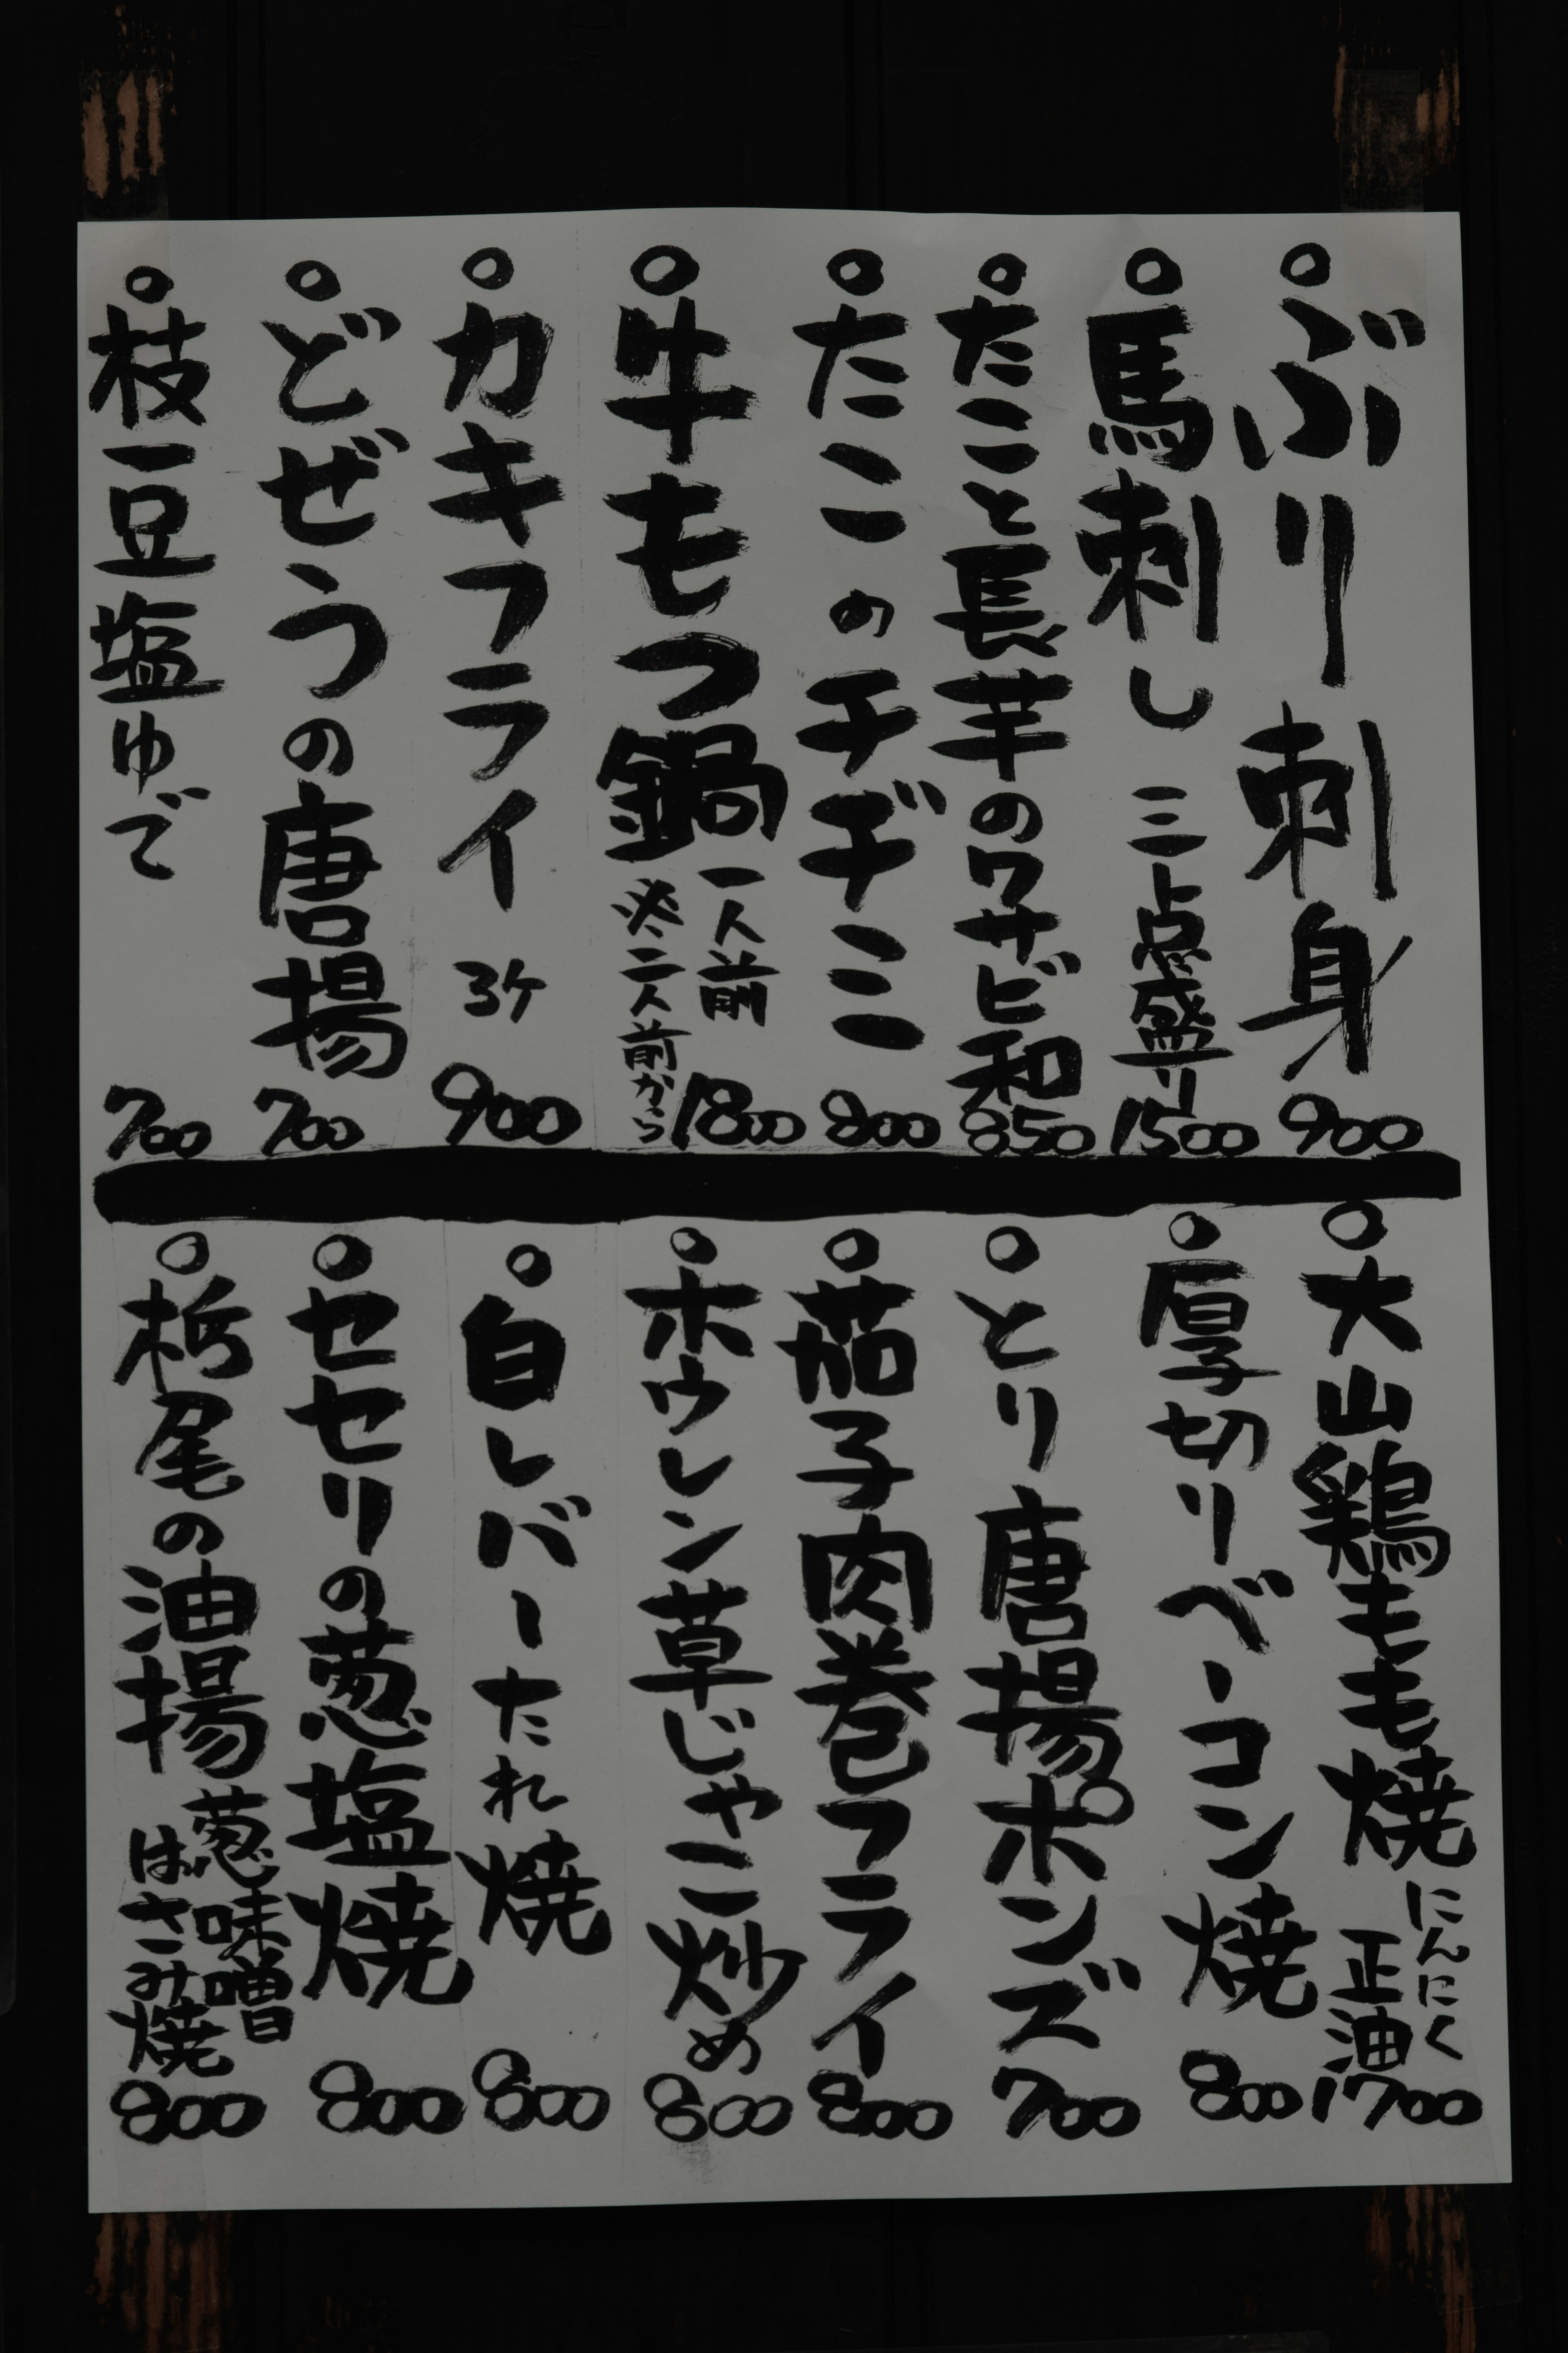 ○ぶり刺身 900
○馬刺し 三点盛り 1500
○たこと長芋のワサビ和 850
○たこのチヂミ 800
○牛もつ鍋 一人前 1800
※二人前から
○カキフライ 3ケ 900
○どぜうの唐揚 700
○枝豆塩ゆで 700
○大山鶏もも焼 にんにく
正油 1700
○厚切りベーコン焼 800
○とり唐揚ポンズ 700
○茄子肉巻フライ 800
○ホウレン草じゃこ炒め 800
○白レバーたれ焼 800
○セセリの葱塩焼 800
○栃尾の油揚 葱味噌
はさみ焼 800